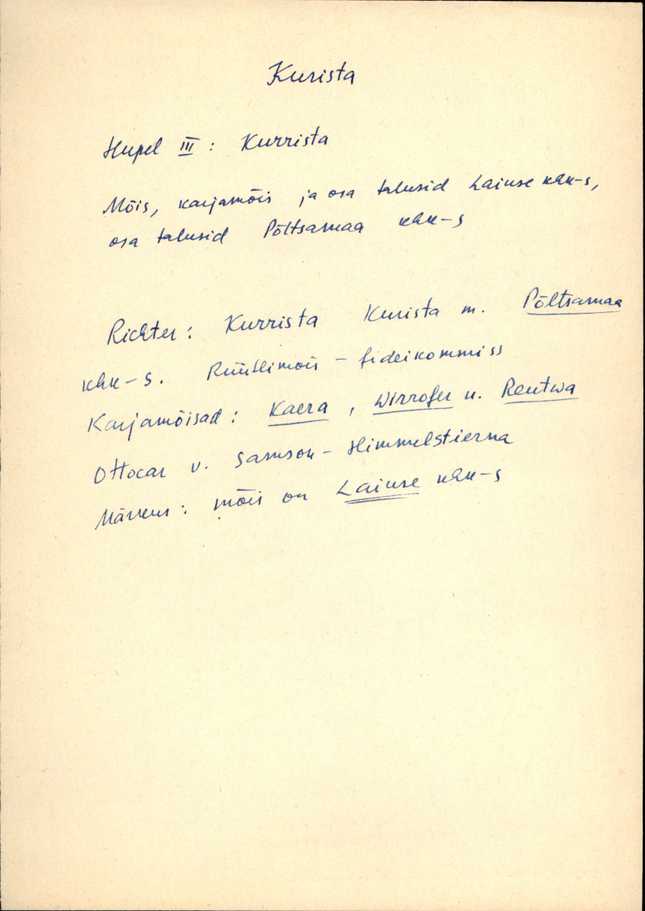 Kurista
Hupel III : Kurrista
Mõis, karjamõis ja osa talusid Laiuse khk-s,
osa talusid Põltsamaa khk-s
Richter : Kurrista Kurista m. Põltsamaa
khk-s. Rüütlimõis - fideikommiss
Karjamõisad : Kaera, Wirrofer u. Rentwa
Ottocar v. Samson-Himmelstierna
Märkus : mõis on Laiuse khk-s